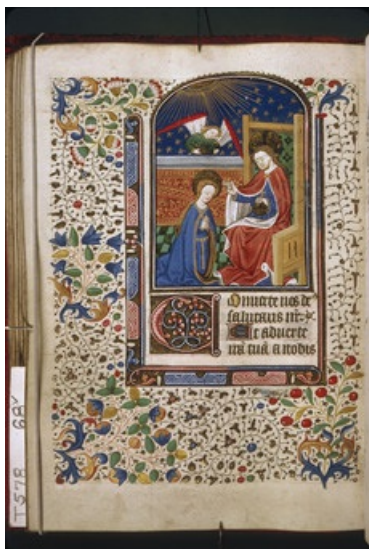 Conuerte nos de
salutaris nr̄
Et aduerte
irā tuā a nobis
T578 68v